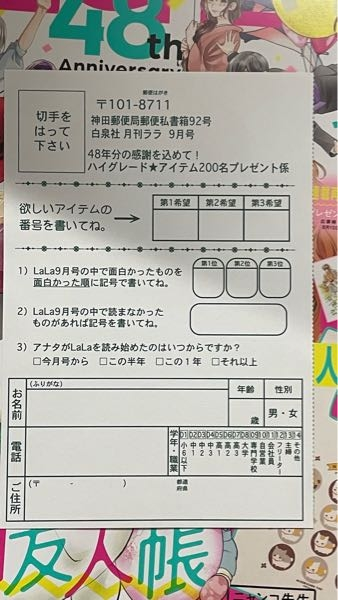 48th
Anniversary
郵便はがき
切手を
はって
下さい
〒101-8711
神田郵便局郵便私書箱92号
白泉社 月刊ララ 9月号
48年分の感謝を込めて!
ハイグレード★アイテム200名プレゼント係
欲しいアイテムの
番号を書いてね。
→
第1希望 第2希望 第3希望
1) LaLa9月号の中で面白かったものを
面白かった順に記号で書いてね。
第1位 第2位 第3位
2) LaLa9月号の中で読まなかった
ものがあれば記号を書いてね。
3) アナタがLaLaを読み始めたのはいつからですか?
□今月号から □この半年 □この1年 □それ以上
お名前
(ふりがな)
年齢
歳
性別
男・女
電話
学年・職業
小6以下
中1
中2
中3
高1
高2
高3
大学
専門学校
自営業
会社員
フリーター
主婦
その他
ご住所
(〒 - )
都道
府県
友人帳
ニャンコ先生